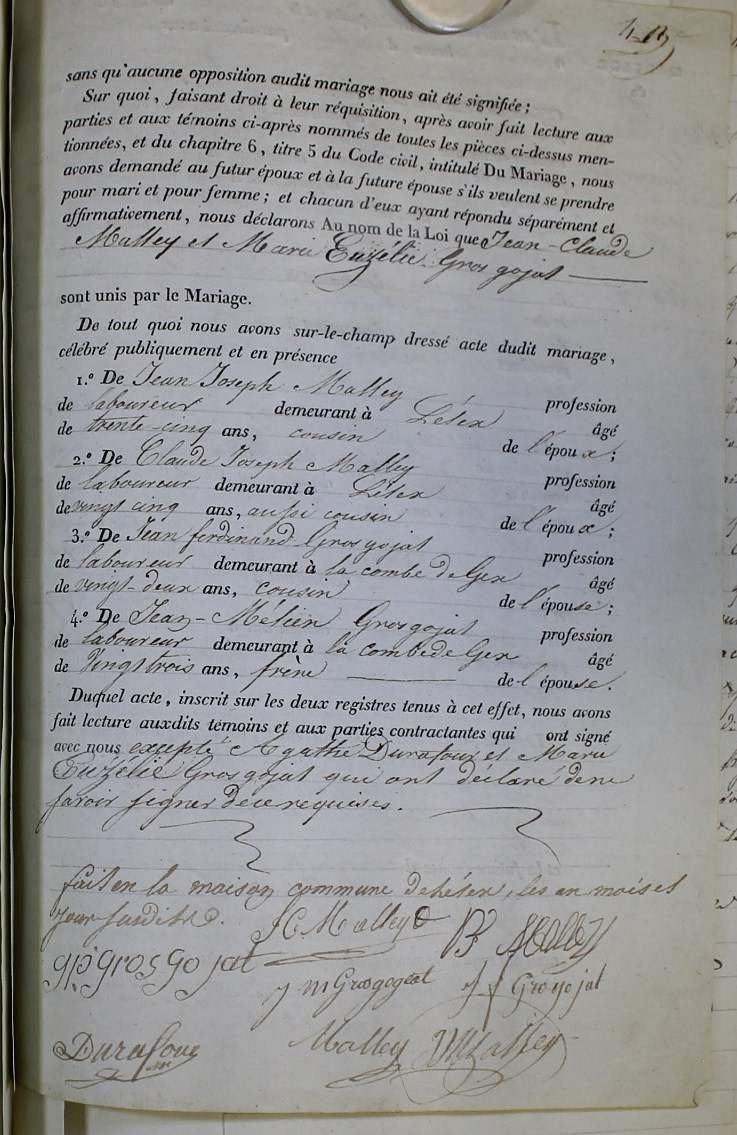 sans qu'aucune opposition audit mariage nous ait été signifiée ;
Sur quoi, faisant droit à leur réquisition, après avoir fait lecture aux
parties et aux témoins ci-après nommés de toutes les pièces ci-dessus men-
tionnées, et du chapitre 6, titre 5 du Code civil, intitulé Du Mariage, nous
avons demandé au futur époux et à la future épouse s'ils veulent se prendre
pour mari et pour femme ; et chacun d'eux ayant répondu séparément et
affirmativement, nous déclarons Au nom de la Loi que Jean-Claude
Malley et Marie Euzélie Gros gojat
sont unis par le Mariage.
De tout quoi nous avons sur-le-champ dressé acte dudit mariage,
célébré publiquement et en présence
1.º De Jean Joseph Malley profession
de laboureur demeurant à Lélex âgé
de trente-cinq ans, cousin de l'époux ;
2.º De Claude Joseph Malley profession
de laboureur demeurant à Lélex âgé
de vingt cinq ans, aussi cousin de l'époux ;
3.º De Jean ferdinand Gros gojat profession
de laboureur demeurant à la combe de Gex âgé
de vingt-deux ans, cousin de l'épouse ;
4.º De Jean-Mélien Grosgojat profession
de laboureur demeurant à la combe de Gex âgé
de vingt trois ans, frère de l'épouse.
Duquel acte, inscrit sur les deux registres tenus à cet effet, nous avons
fait lecture auxdits témoins et aux parties contractantes qui ont signé
avec nous excepté Agathe Durafour et Marie
Euzélie Gros gojat qui ont declaré de ne
savoir signer de ce requises.
fait en la maison commune de Lélex, les an mois et
jour susdits.
JC Malley Malley
gjp gros go jat
j m Grosgogeat j f Grogojat
Durafour Malley Malley